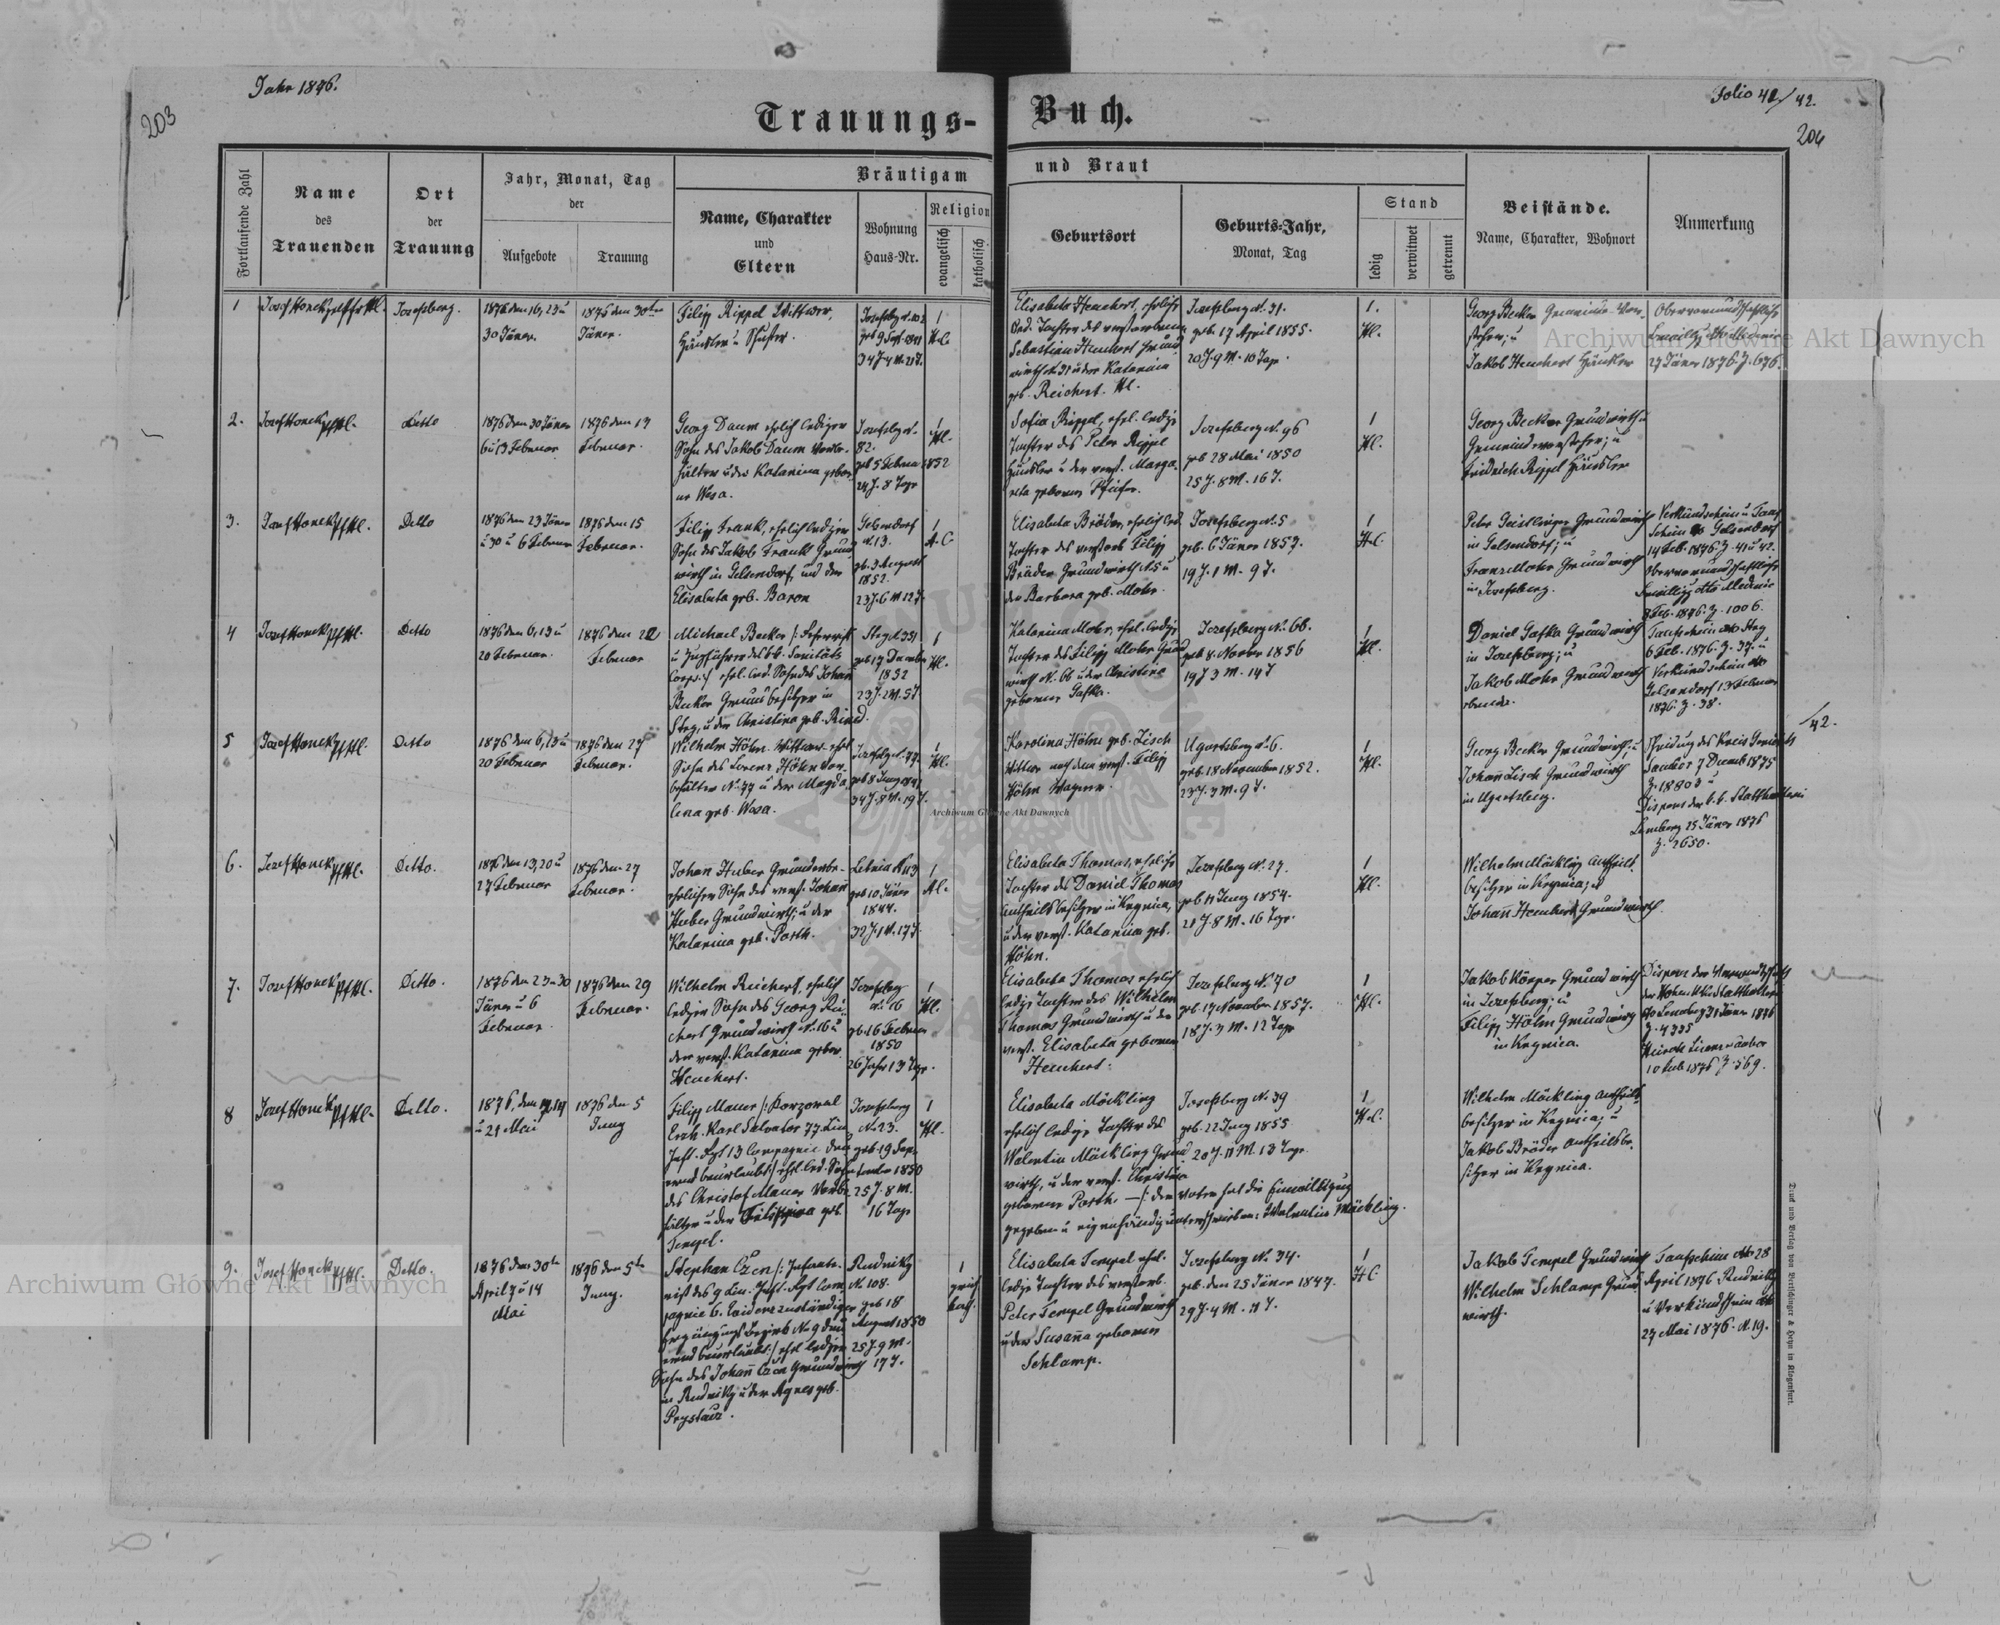 Jahr 1876.
Folio 42/42.
203
204
Trauungs-Buch.
Fortlaufende Zahl
Name
des
Trauenden
Ort
der
Trauung
Jahr, Monat, Tag
der
Aufgebote
Trauung
Bräutigam
und Braut
Name, Charakter
und
Eltern
Wohnung
Haus-Nr.
Religion
evangelisch
katholisch
Geburtsort
Geburts-Jahr,
Monat, Tag
Stand
ledig
verwitwet
getrennt
Beistände.
Name, Charakter, Wohnort
Anmerkung
1
Josefsberg.
1876 den 16, 23 u
30 Jäner.
1876 den 30ten
Jäner.
Filipp Rippel Wittwer,
Häusler u Schuster.
34 J 4 M. 21 T.
1
Elisabeta Heuchert, ehelich
led. Tochter des verstorbenen
Sebastian Heuchert Grund
wirth N. 31 u der Katarina
geb. Reichert. HC.
Josefsberg N. 31.
geb 17 April 1855.
20 J. 9 M. 10 Tage.
1.
HC.
Georg Becker Gemeinde Vor-
steher; u
Jakob Heuchert Häusler
Obervormundschaftliche
27 Jäner 1876 Z. 676.
2.
Ditto
1876 den 30 Jäner
6 u 13 Februar
1876 den 13
Februar.
Georg Daum ehelich lediger
Sohn des Jakob Daum Vorbe-
hälter u der Katarina gebor-
ne Wesa.
Josefsbg N.
82.
geb 5 Februar 1852
24 J. 8 Tage
1
HC.
Sofia Rippel, ehel. ledige
Tochter des Peter Rippel
Häusler u der verst. Marga-
reta geborene Pfeifer.
Josefsberg N. 96
geb 28 Mai 1850
25 J. 8 M. 16 T.
1
HC.
Georg Becker Grundwirth u
Gemeindevorsteher; u
Friedrich Rippel Häusler
3.
Ditto
1876 den 23 Jäner
u 30 u 6 Februar
1876 den 15
Februar.
Filipp Frank, ehelich lediger
Sohn des Jakob Frank Grund
wirth in Gelsendorf, und der
Elisabeta geb. Baron
Gelsendorf
N. 13.
geb. 3 August
1852.
23 J. 6 M 12 T.
1
A.C
Elisabeta Bräder, ehelich led.
Tochter des verstorb Filipp
Bräder Grundwirth N 5 u
der Barbara geb. Mohr.
Josefsberg N. 5
geb. 6 Jäner 1857.
19 J. 1 M. 9 T.
1
H.C
Peter Geistlinger Grundwirth
in Gelsendorf; u
Franz Mohr Grundwirth
in Josefsberg.
Verkündschein u Tauf
Schein Gelsendorf
14 Feb. 1876. Z. 41 u 42.
Obervormundschaftliche
Z. 1006.
4
Ditto
1876 den 6, 13 u
20 Februar.
1876 den 22
Februar
Michael Becker
u Zugführer des k.k. Sanitäts
Corps:/ ehel. led. Sohn des Johann
Becker Grundbesitzer in
Steg, u der Christina geb. Rind.
Steg N 351
geb 17 December
1852
23 J. 2 M. 5 T
1
HC.
Katarina Mohr, ehel. ledige
Tochter des Filipp Mohr Grund
wirth N. 66 u der Christina
geborene Gafka.
Josefsberg N. 66.
geb 8. Novbr 1856
19 J 3 M. 14 T
1
HC.
Daniel Gafka Grundwirth
in Josefsberg; u
Jakob Mohr Grundwirth
ebenda.
Taufschein Steg
6 Feb. 1876. Z. 37. u
Verkündschein
Gelsendorf 13 Februar
1876. Z. 38.
5
Ditto
1876 den 6, 13 u
20 Februar
1876 den 27
Februar.
Wilhelm Höhn Wittwer ehel
Sohn des Lorenz Höhn Vor-
behälter N. 77 u der Magda-
lena geb. Wesa.
Josefsbg N. 77.
34 J. 8 M. 19 T.
1
HC.
Karolina Höhn geb. Lisch
Wittwe nach dem verst. Filipp
Höhn Wagner.
Ugartsberg N. 6.
geb. 18 November 1852.
23 J. 3 M. 9 T.
1
HC.
Georg Becker Grundwirth; u
Johann Lisch Grundwirth
in Ugartsberg.
/42.
Sambor 7 Decemb 1875
Z. 18803 u
Dispens der k.k. Statthalterei
Lemberg 25 Jäner 1876
Z. 2650.
6.
Ditto.
1876 den 13, 20 u
27 Februar
1876 den 27
Februar.
Johann Huber
ehelicher Sohn des verst. Johann
Huber Grundwirth; u der
Katarina geb. Porth.
Letnia N 113
geb 10 Jäner
1844.
32 J. 1 M. 17 T.
1
A.C.
Elisabeta Thomas, ehelich
Tochter des Daniel Thomas
Antheilsbesitzer in Krynica,
u der verst. Katarina geb.
Höhn.
Josefsberg N. 27.
geb 11 Juny 1854.
21 J. 8 M. 16 Tage.
1
HC.
Wilhelm Möckling Antheils-
besitzer in Krynica; u
Johann Heuchert Grundwirth.
7.
Ditto.
1876 den 23 u 30
Jäner u 6
Februar.
1876 den 29
Februar.
Wilhelm Reichert, ehelich
lediger Sohn des Georg Rei-
chert Grundwirth N. 16 u
der verst. Katarina gebor
Heuchert.
Josefsberg
N. 16
geb. 16 Februar
1850
26 Jahr 13 Tage.
1
HC.
Elisabeta Thomas ehelich
ledige Tochter des Wilhelm
Thomas Grundwirth u der
verst. Elisabeta geborene
Heuchert.
Josefsberg N. 70
geb. 17 November 1857.
18 J. 3 M. 12 Tage
1
HC.
Jakob Köpper Grundwirth
in Josefsberg; u
Filipp Höhn Grundwirth
in Krynica.
Lemberg 31 Jäner 1876
Z. 4335
10 Feb 1876 Z. 569.
8
Ditto.
u 21 Mai
1876 den 5
Juny
Filipp Mauer /: Korporal
Erzh. Karl Salvator 77. Lin
Inft. Rgt 13 Compagnie
beurlaubt :/ ehel. led. Sohn
des Christof Mauer Vorbe-
hälter u der Filippina geb.
Tempel.
Josefsberg
N. 23.
geb 19 Sep-
tember 1850
25 J. 8 M.
16 Tage
1
HC.
Elisabeta Möckling
ehelich ledige Tochter des
Walentin Möckling Grund
wirth, u der verst. Christina
geborene Porth. —/: der Vater hat die Einwilligung
gegeben u eigenhändig unterschrieben: Walentin Möckling.
Josefsberg N. 39
geb. 22 Juny 1855
20 J. 11 M. 13 Tage.
1
H.C.
Wilhelm Möckling Antheils-
besitzer in Krynica; u
Jakob Bräder Antheilsbe-
sitzer in Krynica.
9.
Ditto.
1876 den 30te
April 7 u 14
Mai
1876 den 5te
Juny.
Stephan Czen /: Infante-
rist des 9 Lin. Inft. Rgt Com-
pagnie 6.
beurlaubt:/ ehel. lediger
Sohn des Johann Czen Grundwirth
in Rudniky u der Agnes geb.
Prystacz.
Rudniky
N. 108.
geb 18
August 1850
25 J. 9 M.
17 T.
1
griech
kath.
Elisabeta Tempel ehel.
ledige Tochter des verstorb.
Peter Tempel Grundwirth
u der Susanna geborene
Schlamp.
Josefsberg N. 34.
geb. den 25 Jäner 1847.
29 J. 4 M. 11 T.
1
HC
Jakob Tempel Grundwirth
Wilhelm Schlamp Grund
wirth.
Taufschein 28
April 1876 Rudniky
u Verkündschein
27 Mai 1876. N. 19.
Druck und Verlag von Bertschinger & Heyn in Klagenfurt.
Archiwum Główne Akt Dawnych
Archiwum Główne Akt Dawnych
Archiwum Główne Akt Dawnych